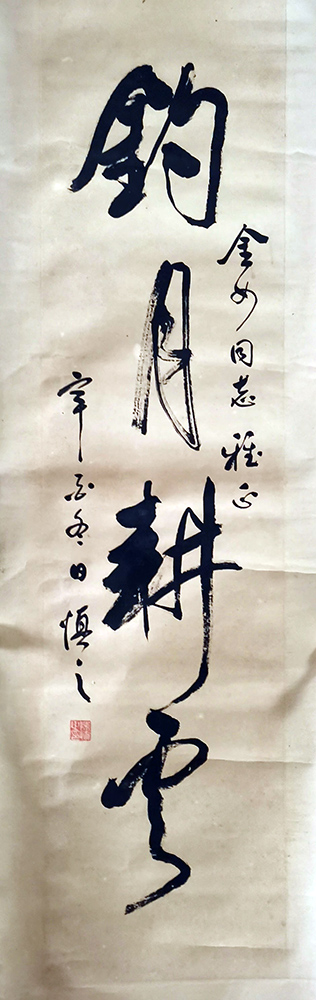 釣月耕云
金如同志雅正
辛酉冬日慎之